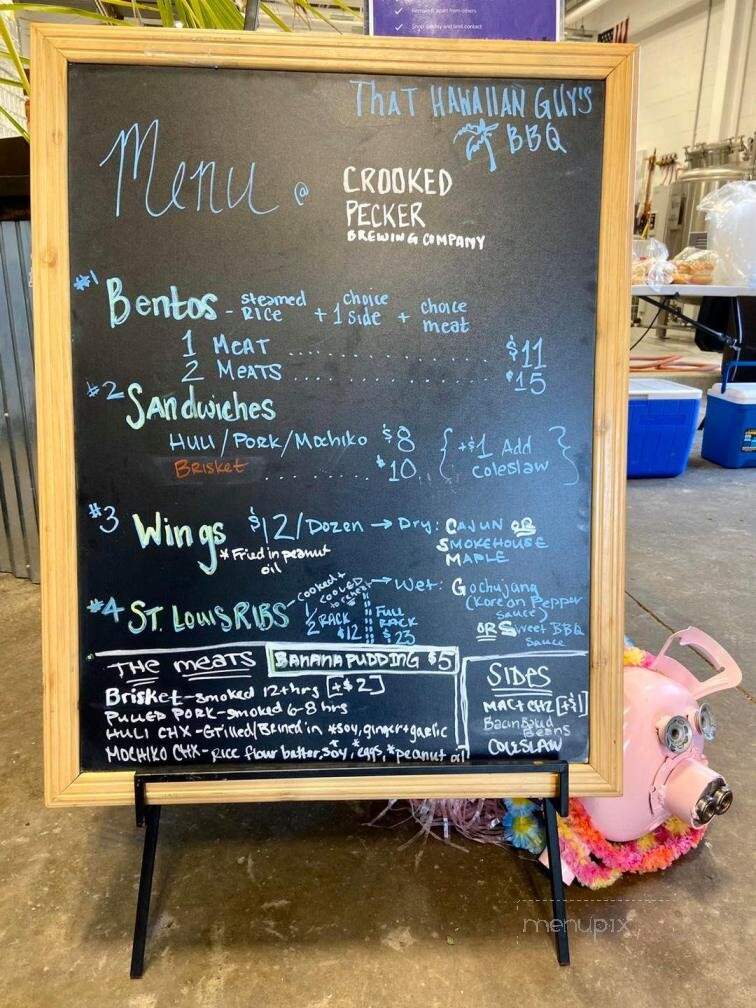 Remain 6' apart from others
THAT HAWAIIAN GUY'S
BBQ
Menu @ CROOKED
PECKER
BREWING COMPANY
#1 Bentos - steamed RICE + 1 choice side + choice meat
1 MEAT .................... $11
2 MEATS .................... $15
#2 Sandwiches
HULI / PORK / Mochiko $8 { +$1 Add
Brisket ............ $10 coleslaw }
#3 Wings $12/Dozen → Dry: CAJUN OR
SMOKEHOUSE
MAPLE
*Fried in peanut
oil
→ Wet: Gochujang
(Korean Pepper
sauce)
OR Sweet BBQ
Sauce
#4 ST. LOUIS RIBS - cooked + COOLED to reheat
1/2 RACK $12
FULL RACK $23
THE MEATS
BANANA PUDDING $5
Brisket - smoked 12+ hrs [+$2]
PULLED PORK - smoked 6-8 hrs
HULI CHX - Grilled/Brined in *soy, ginger + garlic
MOCHIKO CHX - Rice flour batter, soy, *eggs, *peanut oil
SIDES
MAC + CHZ [+$1]
Beans
COLESLAW
menupix